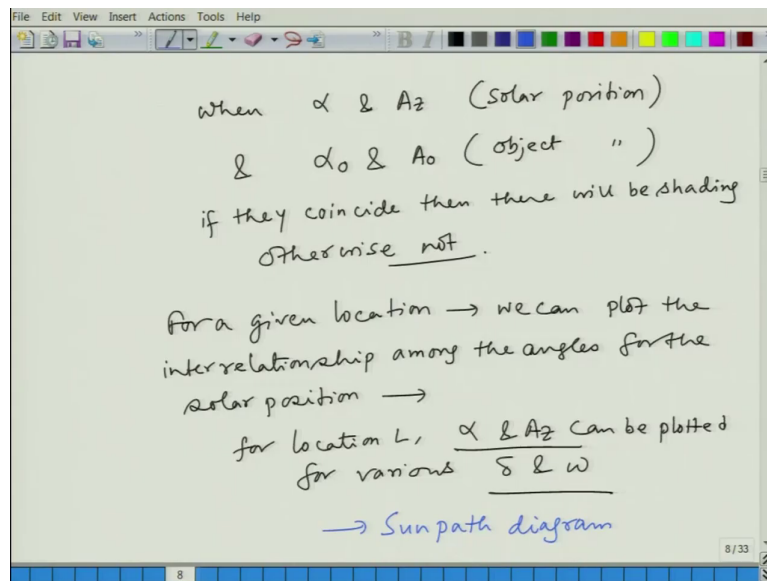 File Edit View Insert Actions Tools Help
when α & Az (solar position)
& αo & Ao ( object " )
if they coincide then there will be shading
otherwise not.
For a given location → we can plot the
interrelationship among the angles for the
solar position →
for location L, α & Az can be plotted
for various δ & ω
→ Sunpath diagram
8/33
8